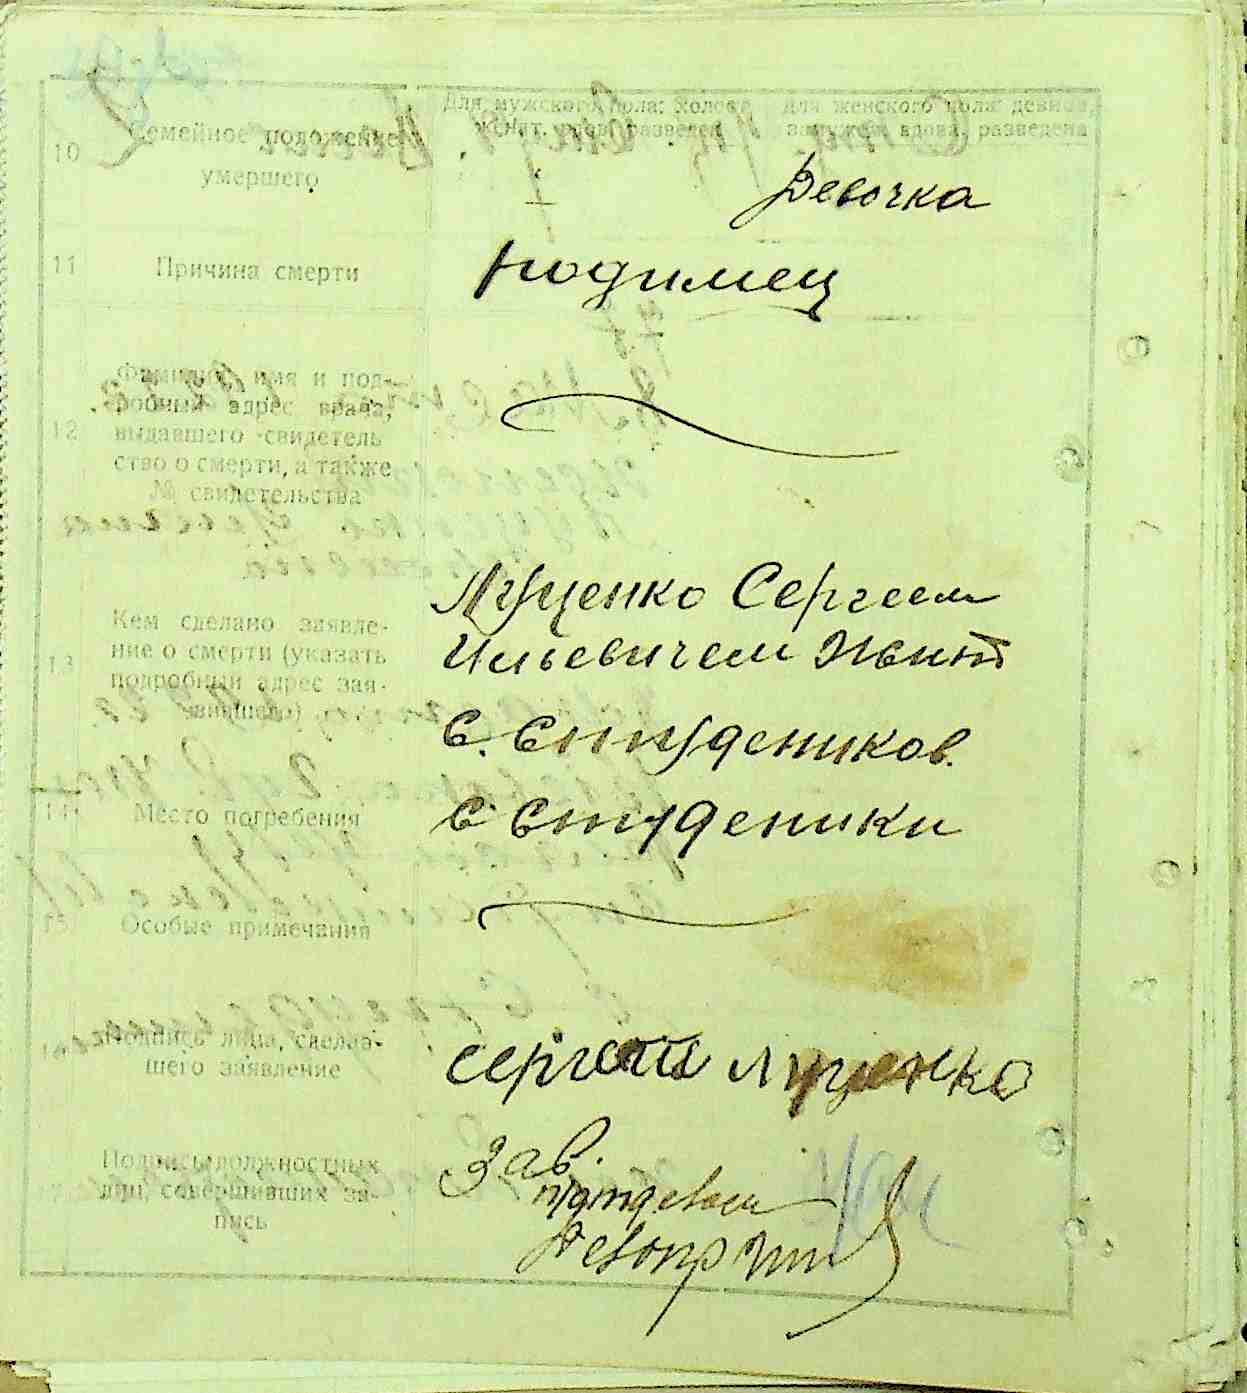 10
Семейное положение
умершего
Для мужского пола: холост,
женат, вдов, разведен
для женского пола: девица,
замужем, вдова, разведена
девочка
11
Причина смерти
Родимец
12
Фамилия, имя и под-
робный адрес врача,
выдавшего свидетель
ство о смерти, а также
№ свидетельства
13
Кем сделано заявле-
ние о смерти (указать
подробный адрес зая-
вившего)
Луценко Сергеем
Ильевичем
с. Студеников.
14
Место погребения
с Студеники
15
Особые примечания
Подпись лица, сделав-
шего заявление
Сергей Луценко
Подписи должностных
лиц, совершивших за-
пись
Зав.